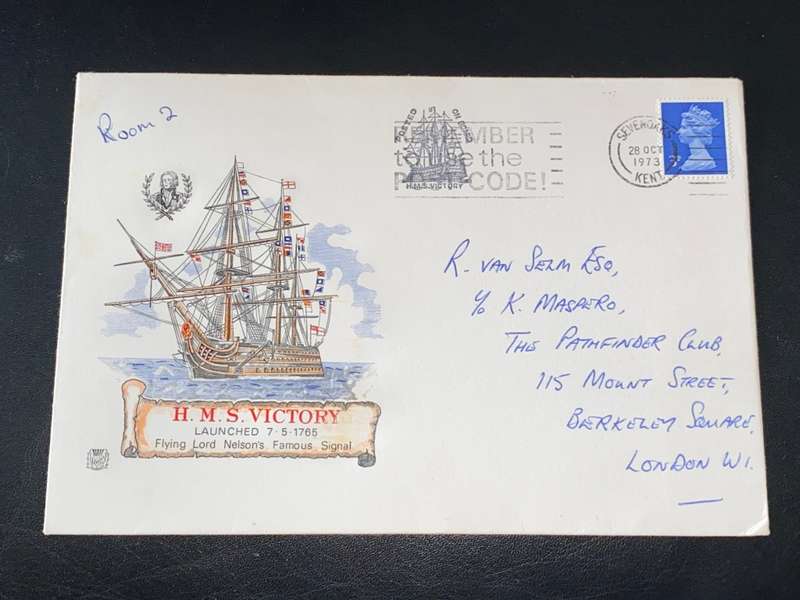 Room 2
POSTED ON BOARD
H.M.S. VICTORY
REMEMBER
to use the
POST CODE!
SEVENOAKS
28 OCT
1973
KENT
R. VAN SELM ESQ,
c/o K. MASPERO,
THE PATHFINDER CLUB,
115 MOUNT STREET,
BERKELEY SQUARE,
LONDON W1.
H.M.S. VICTORY
LAUNCHED 7·5·1765
Flying Lord Nelson's Famous Signal